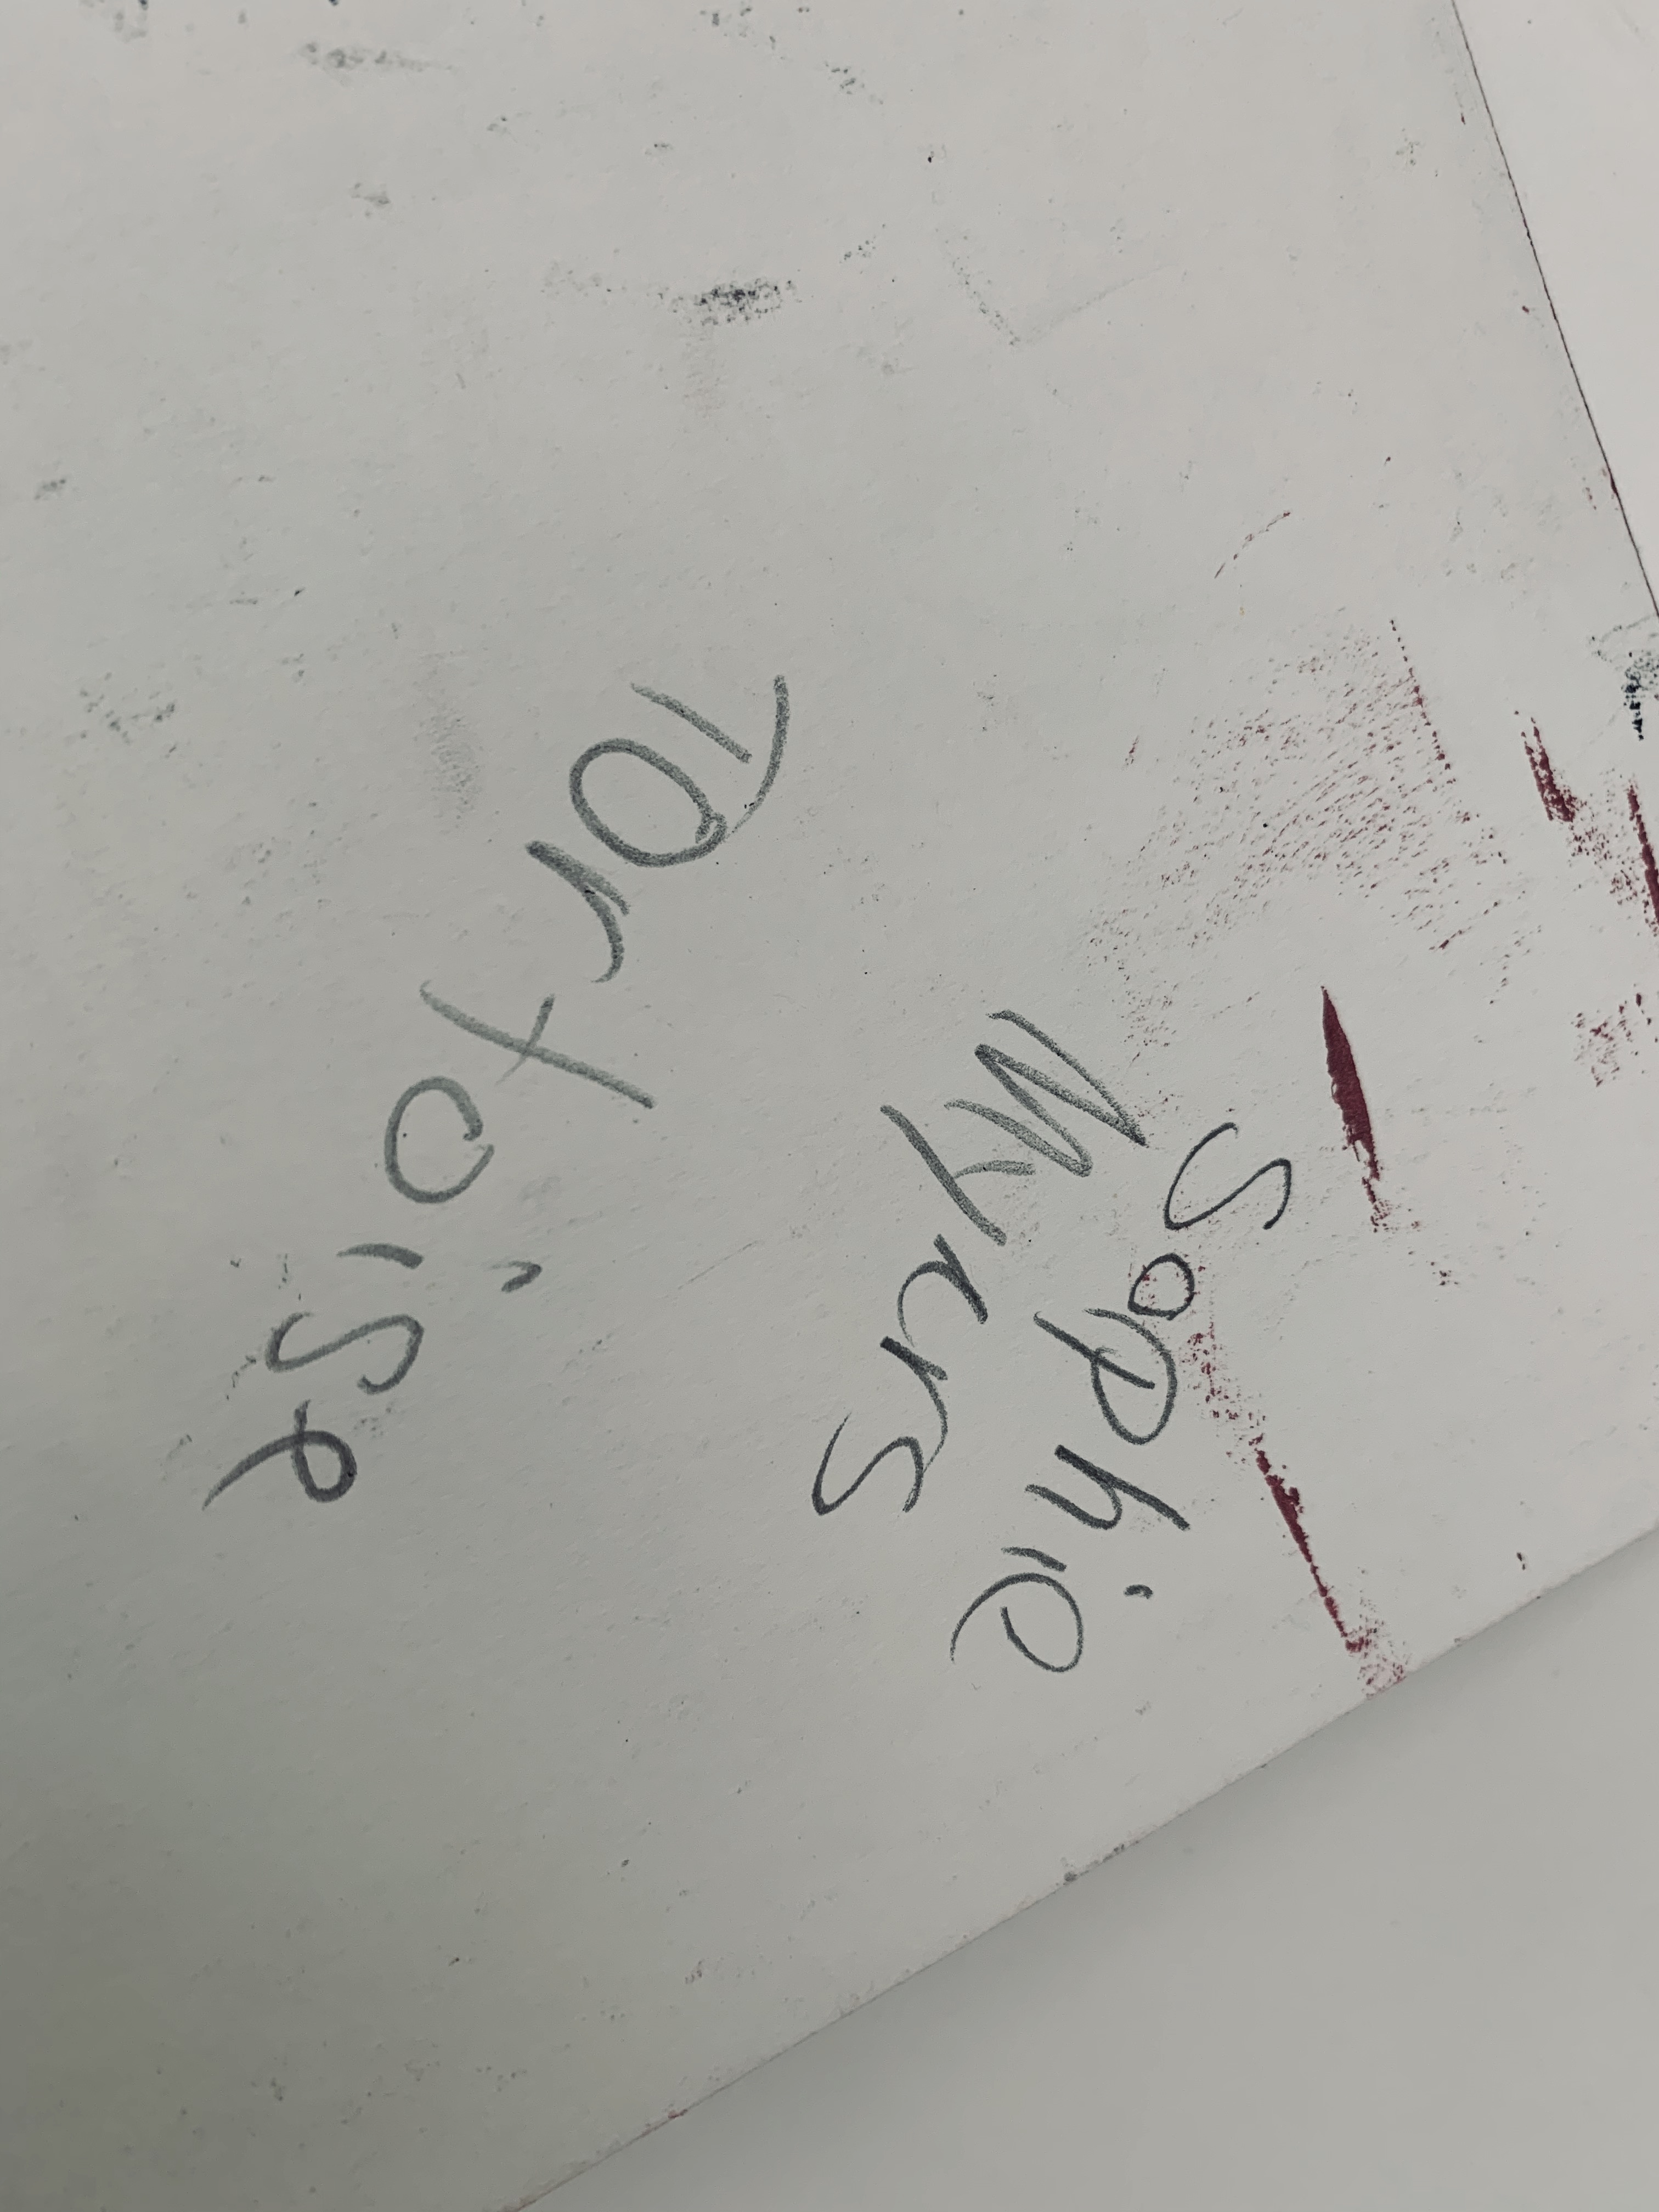 Sophie
Myrus
Tortoise